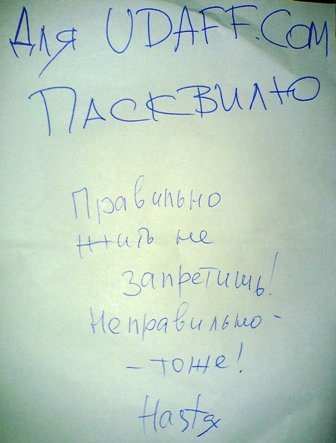 Для UDAFF.COM
ПАСКВИЛЮ
Правильно
жить не
запретишь!
Неправильно -
- тоже!
Hasta